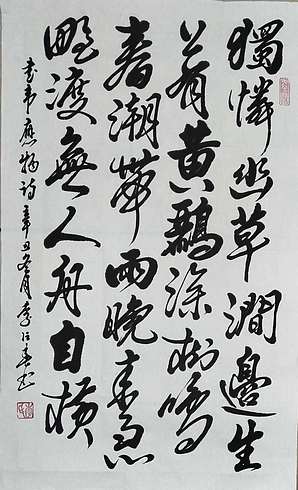 獨憐幽草澗邊生
上有黃鸝深樹鳴
春潮帶雨晚來急
野渡無人舟自橫
書韋應物詩辛丑冬月李